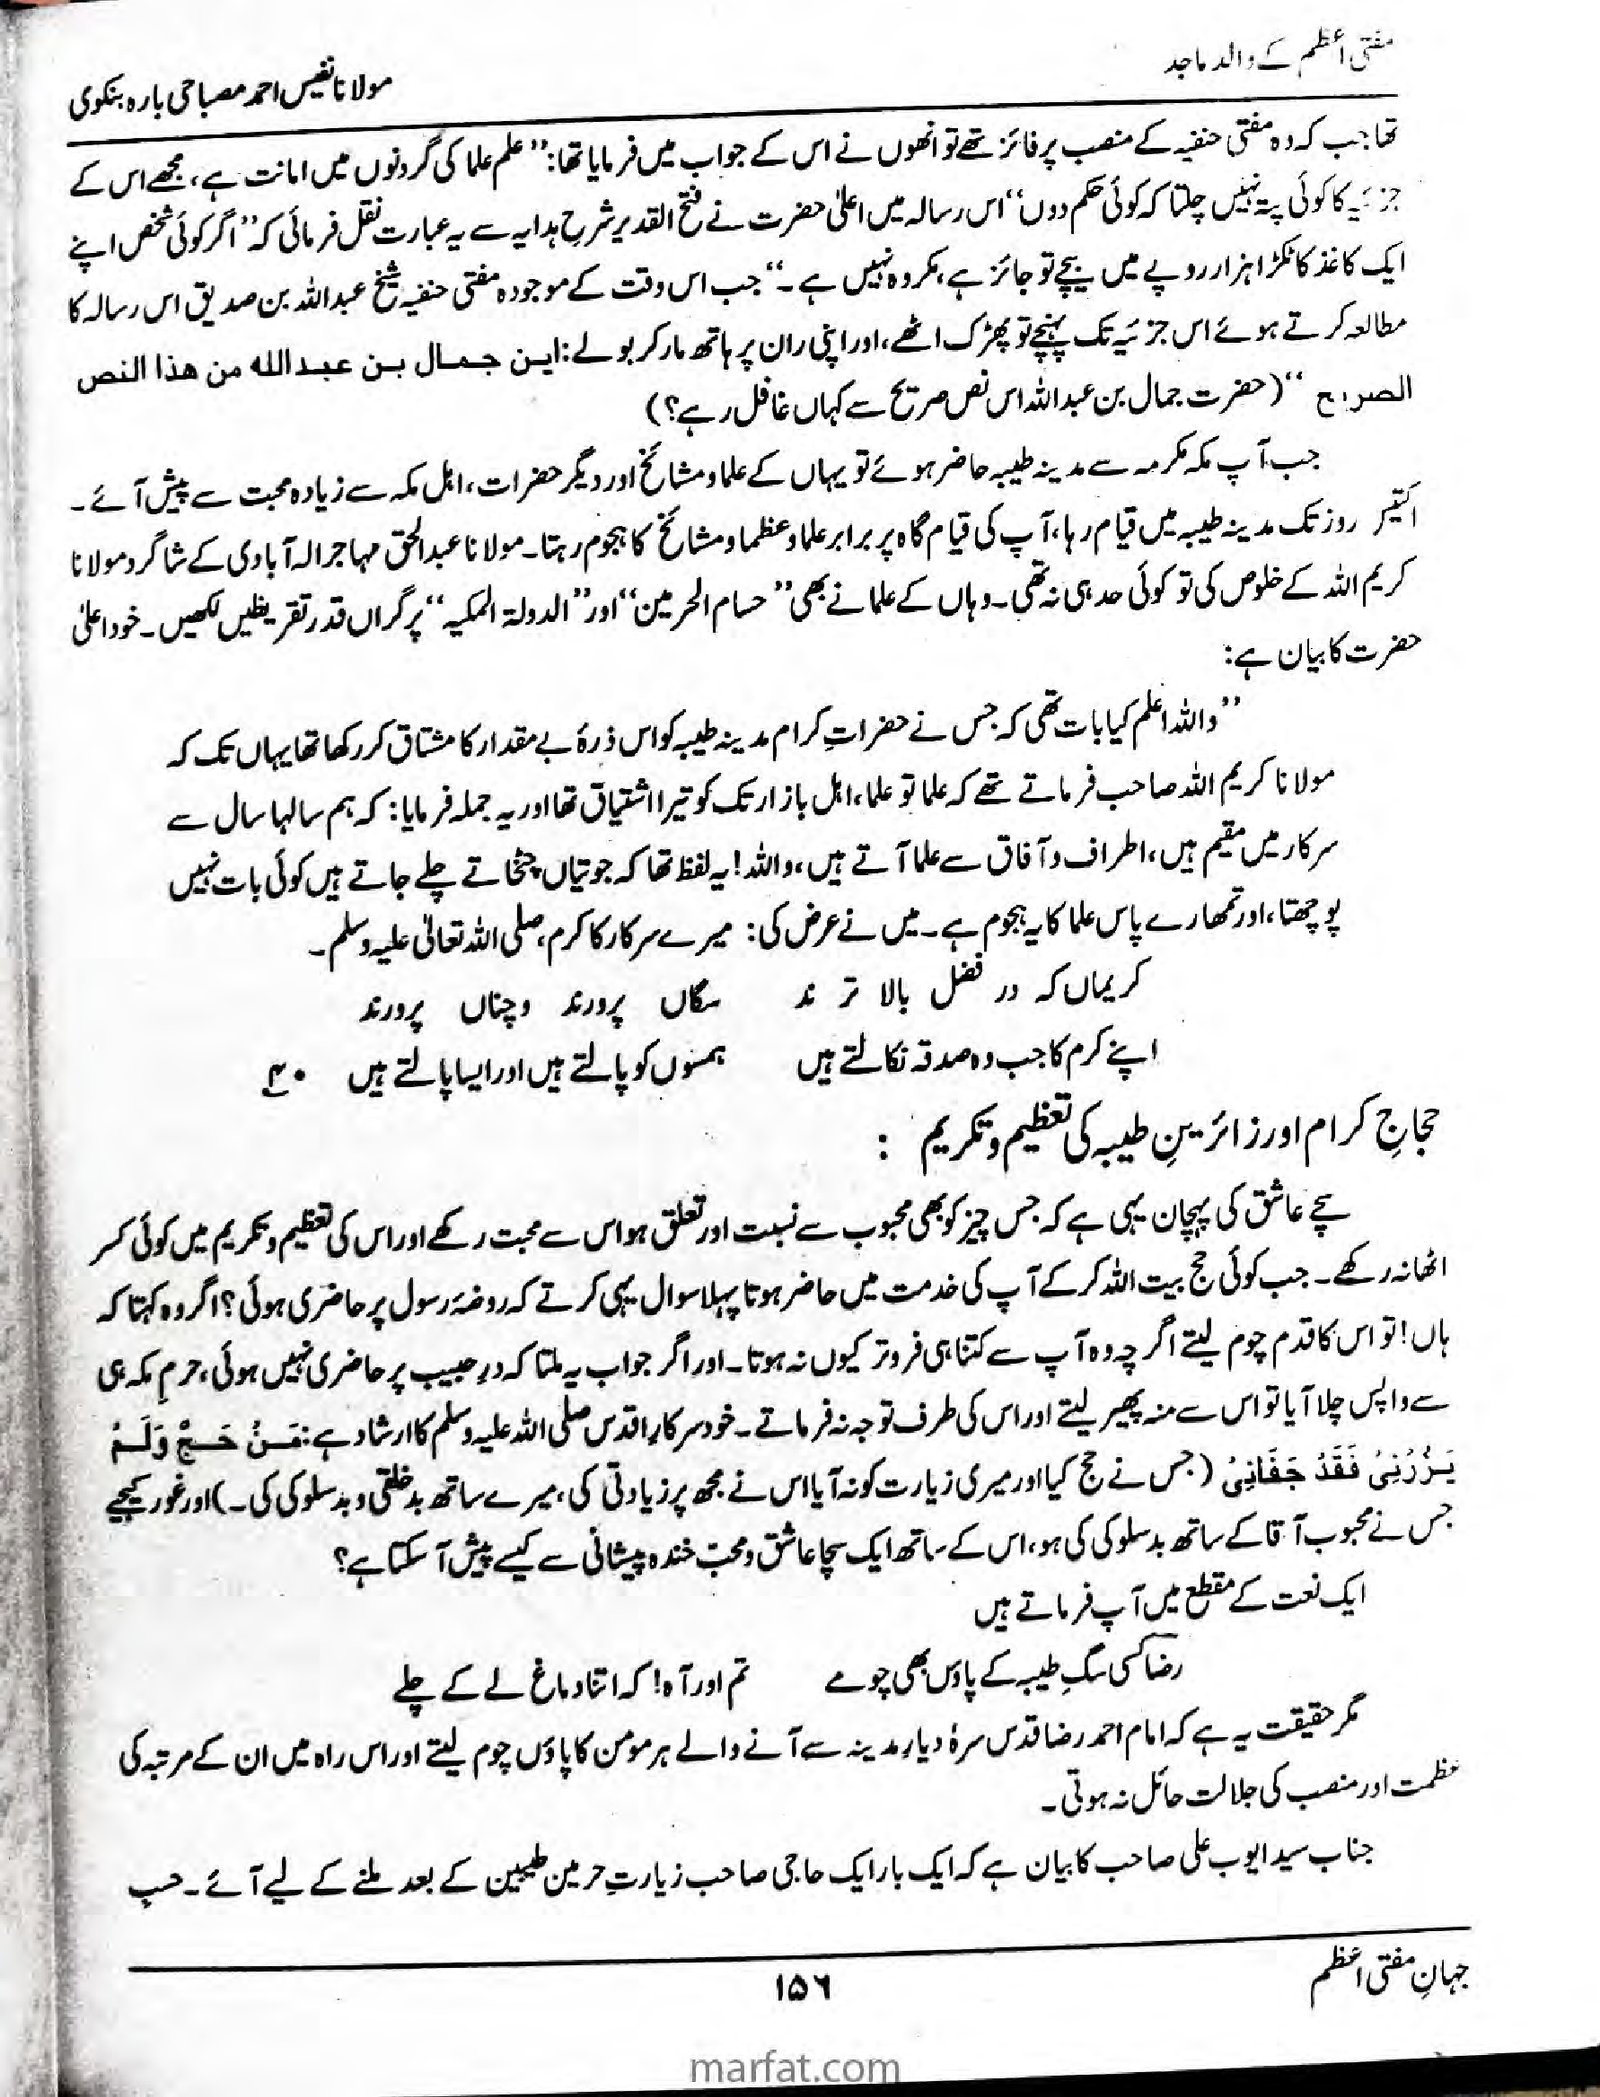 مفتی اعظم کے والد ماجد
مولانا نفیس احمد مصباحی بارہ بنکوی
تھا جب کہ وہ مفتی حنفیہ کے منصب پر فائز تھے تو انھوں نے اس کے جواب میں فرمایا تھا: ”علم علما کی گردنوں میں امانت ہے، مجھے اس کے
جزئیہ کا کوئی پتہ نہیں چلتا کہ کوئی حکم دوں“ اس رسالہ میں اعلیٰ حضرت نے فتح القدیر شرح ہدایہ سے یہ عبارت نقل فرمائی کہ ”اگر کوئی شخص اپنے
ایک کاغذ کا ٹکڑا ہزار روپے میں بیچے تو جائز ہے، مکروہ نہیں ہے۔“ جب اس وقت کے موجودہ مفتی حنفیہ شیخ عبداللہ بن صدیق اس رسالہ کا
مطالعہ کرتے ہوئے اس جزئیہ تک پہنچے تو پھڑک اٹھے، اور اپنی ران پر ہاتھ مار کر بولے: این جمال بن عبدالله من هذا النص
الصریح “ (حضرت جمال بن عبداللہ اس نص صریح سے کہاں غافل رہے؟)
جب آپ مکہ مکرمہ سے مدینہ طیبہ حاضر ہوئے تو یہاں کے علما و مشائخ اور دیگر حضرات، اہل مکہ سے زیادہ محبت سے پیش آئے۔
اکتیس روز تک مدینہ طیبہ میں قیام رہا، آپ کی قیام گاہ پر برابر علما و عظما و مشائخ کا ہجوم رہتا۔ مولانا عبدالحق مہاجر الہ آبادی کے شاگرد مولانا
کریم اللہ کے خلوص کی تو کوئی حد ہی نہ تھی۔ وہاں کے علما نے بھی ”حسام الحرمین“ اور ”الدولۃ المکیہ“ پر گراں قدر تقریظیں لکھیں۔ خود اعلیٰ
حضرت کا بیان ہے:
”واللہ اعلم کیا بات تھی کہ جس نے حضراتِ کرام مدینہ طیبہ کو اس ذرۂ بے مقدار کا مشتاق کر رکھا تھا یہاں تک کہ
مولانا کریم اللہ صاحب فرماتے تھے کہ علما تو علما، اہل بازار تک کو تیرا اشتیاق تھا اور یہ جملہ فرمایا: کہ ہم سالہا سال سے
سرکار میں مقیم ہیں، اطراف و آفاق سے علما آتے ہیں، واللہ! یہ لفظ تھا کہ جوتیاں چٹخاتے چلے جاتے ہیں کوئی بات نہیں
پوچھتا، اور تمھارے پاس علما کا یہ ہجوم ہے۔ میں نے عرض کی: میرے سرکار کا کرم، صلی اللہ تعالیٰ علیہ وسلم۔
کریماں کہ در فضل بالا تر ند سگاں پرورند و چناں پرورند
اپنے کرم کا جب وہ صدقہ نکالتے ہیں ہمسوں کو پالتے ہیں اور ایسا پالتے ہیں ۴۰
حجاجِ کرام اور زائرینِ طیبہ کی تعظیم و تکریم :
سچے عاشق کی پہچان یہی ہے کہ جس چیز کو بھی محبوب سے نسبت اور تعلق ہو اس سے محبت رکھے اور اس کی تعظیم و تکریم میں کوئی کسر
اٹھا نہ رکھے۔ جب کوئی حج بیت اللہ کر کے آپ کی خدمت میں حاضر ہوتا پہلا سوال یہی کرتے کہ روضۂ رسول پر حاضری ہوئی؟ اگر وہ کہتا کہ
ہاں! تو اس کا قدم چوم لیتے اگر چہ وہ آپ سے کتنا ہی فروتر کیوں نہ ہوتا۔ اور اگر جواب یہ ملتا کہ درِ حبیب پر حاضری نہیں ہوئی، حرمِ مکہ ہی
سے واپس چلا آیا تو اس سے منہ پھیر لیتے اور اس کی طرف توجہ نہ فرماتے۔ خود سرکارِ اقدس صلی اللہ علیہ وسلم کا ارشاد ہے: مَنْ حَجَّ وَلَمْ
يَزُرْنِيْ فَقَدْ جَفَانِيْ (جس نے حج کیا اور میری زیارت کو نہ آیا اس نے مجھ پر زیادتی کی، میرے ساتھ بد خلقی و بد سلوکی کی۔) اور غور کیجیے
جس نے محبوب آقا کے ساتھ بد سلوکی کی ہو، اس کے ساتھ ایک سچا عاشق و محب خندہ پیشانی سے کیسے پیش آ سکتا ہے؟
ایک نعت کے مقطع میں آپ فرماتے ہیں
رضا کسی سگِ طیبہ کے پاؤں بھی چومے تم اور آہ! کہ اتنا دماغ لے کے چلے
مگر حقیقت یہ ہے کہ امام احمد رضا قدس سرہٗ دیارِ مدینہ سے آنے والے ہر مومن کا پاؤں چوم لیتے اور اس راہ میں ان کے مرتبہ کی
عظمت اور منصب کی جلالت حائل نہ ہوتی۔
جناب سید ایوب علی صاحب کا بیان ہے کہ ایک بار ایک حاجی صاحب زیارتِ حرمین طیبین کے بعد ملنے کے لیے آئے۔ حسب
جہانِ مفتی اعظم
۱۵۶
marfat.com